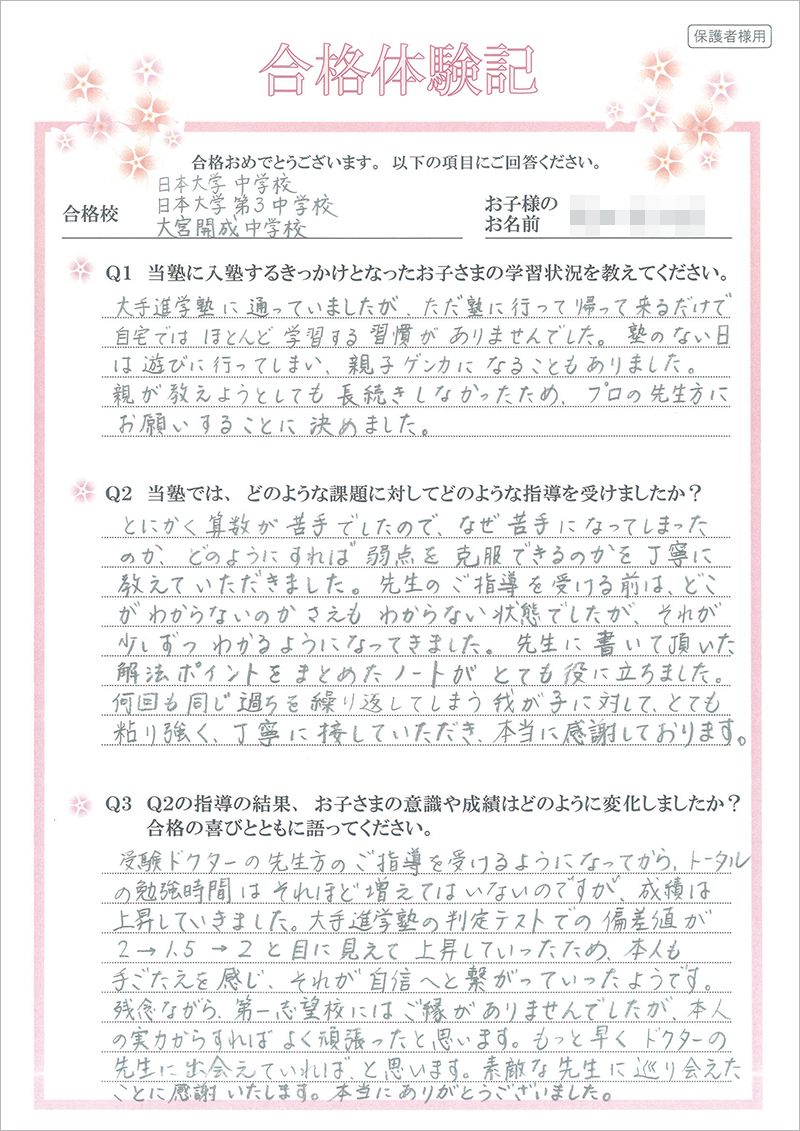 保護者様用
合格体験記
合格おめでとうございます。以下の項目にご回答ください。
合格校
日本大学中学校
日本大学第3中学校
大宮開成中学校
お子様の
お名前
Q1 当塾に入塾するきっかけとなったお子さまの学習状況を教えてください。
大手進学塾に通っていましたが、ただ塾に行って帰って来るだけで
自宅ではほとんど学習する習慣がありませんでした。塾のない日
は遊びに行ってしまい、親子ゲンカになることもありました。
親が教えようとしても長続きしなかったため、プロの先生方に
お願いすることに決めました。
Q2 当塾では、どのような課題に対してどのような指導を受けましたか？
とにかく算数が苦手でしたので、なぜ苦手になってしまった
のか、どのようにすれば弱点を克服できるのかを丁寧に
教えていただきました。先生のご指導を受ける前は、どこ
がわからないのかさえもわからない状態でしたが、それが
少しずつわかるようになってきました。先生に書いて頂いた
解法ポイントをまとめたノートがとても役に立ちました。
何回も同じ過ちを繰り返してしまう我が子に対して、とても
粘り強く、丁寧に接していただき、本当に感謝しております。
Q3 Q2の指導の結果、お子さまの意識や成績はどのように変化しましたか？
合格の喜びとともに語ってください。
受験ドクターの先生方のご指導を受けるようになってから、トータル
の勉強時間はそれほど増えてはいないのですが、成績は
上昇していきました。大手進学塾の判定テストでの偏差値が
2→1.5→2と目に見えて上昇していったため、本人も
手ごたえを感じ、それが自信へと繋がっていったようです。
残念ながら、第一志望校にはご縁がありませんでしたが、本人
の実力からすればよく頑張ったと思います。もっと早くドクターの
先生に出会えていれば、と思います。素敵な先生に巡り会えた
ことに感謝いたします。本当にありがとうございました。